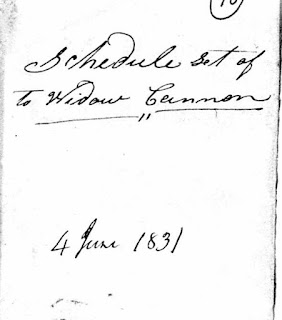 Schedule Set of
to Widow Cannon
4 June 1831